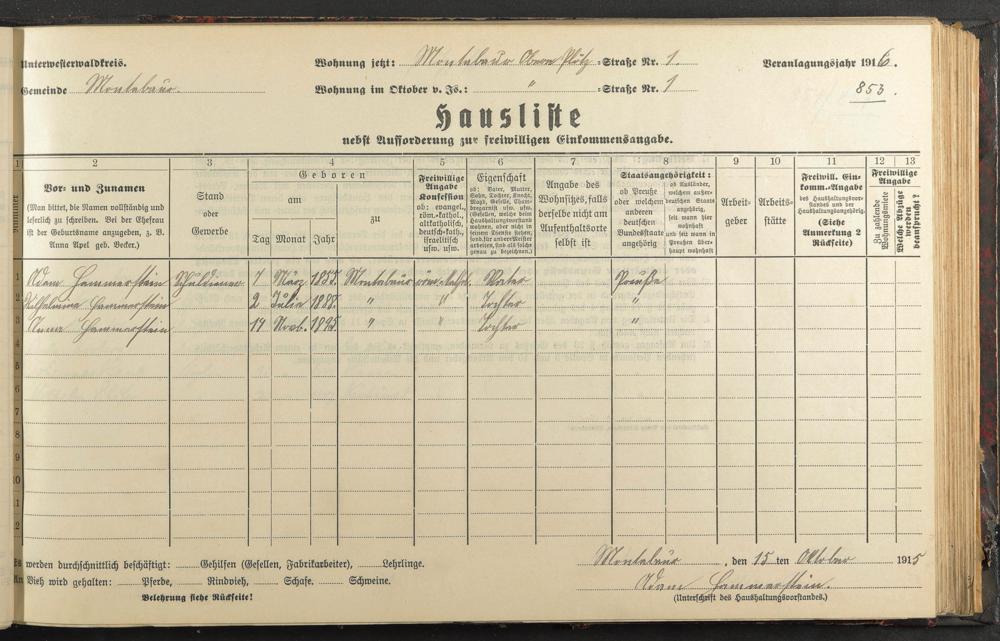 Unterwesterwaldkreis.
Wohnung jetzt: Montabaur Obere Plötz -Straße Nr. 1.
Veranlagungsjahr 1916.
Gemeinde Montabaur.
Wohnung im Oktober v. Js.: " -Straße Nr. 1
853.
Hausliste
nebst Aufforderung zur freiwilligen Einkommensangabe.
1 2 3 4 5 6 7 8 9 10 11 12 13
Nummer
Vor- und Zunamen
(Man bittet, die Namen vollständig und
leserlich zu schreiben. Bei der Ehefrau
ist der Geburtsname anzugeben, z. B.
Anna Apel geb. Becker.)
Stand
oder
Gewerbe
Geboren
am
zu
Tag Monat Jahr
Freiwillige
Angabe
Konfession
ob: evangel.,
röm.-kathol.,
altkatholisch,
deutsch-kath.,
israelitisch
usw. usw.
Eigenschaft
ob: Vater, Mutter,
Sohn, Tochter, Knecht,
Magd, Geselle, Cham-
bregarnist usw. usw.
(Gesellen, welche beim
Haushaltungsvorstand
wohnen, aber nicht in
seinem Dienste stehen,
sond. für andere Meister
arbeiten, sind als solche
genau zu bezeichnen.)
Angabe des
Wohnsitzes, falls
derselbe nicht am
Aufenthaltsorte
selbst ist
Staatsangehörigkeit:
ob Preuße
oder welchem
anderen
deutschen
Bundesstaate
angehörig
ob Ausländer,
welchem außer-
deutschen Staate
angehörig,
seit wann hier
wohnhaft
und seit wann in
Preußen über-
haupt wohnhaft
Arbeit-
geber
Arbeits-
stätte
Freiwill. Ein-
komm.-Angabe
des Haushaltungsvor-
standes und der
Haushaltungsangehörig.
(Siehe
Anmerkung 2
Rückseite)
Freiwillige
Angabe
Zu zahlende
Wohnungsmiete
Welche Abzüge
werden
beansprucht?
1 Adam Hammerstein Schuldiener 7 März 1855. Montabaur röm. kathl. Vater Preuße
2 Wilhelmina Hammerstein 2 Julie 1888. " " Tochter "
3 Anna Hammerstein 19 Novb. 1895 " " Tochter "
4
5
6
7
8
9
10
1
2
Es werden durchschnittlich beschäftigt: Gehilfen (Gesellen, Fabrikarbeiter), Lehrlinge.
Montabaur, den 15 ten Oktober 1915
An Vieh wird gehalten: Pferde, Rindvieh, Schafe. Schweine.
Adam Hammerstein.
Belehrung siehe Rückseite!
(Unterschrift des Haushaltungsvorstandes.)